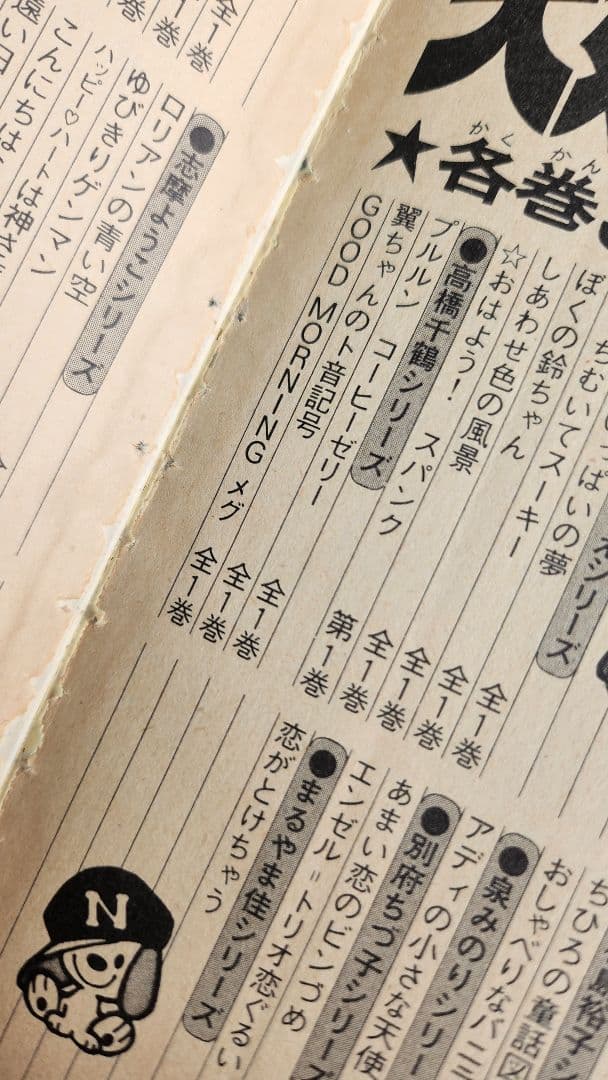 ★各巻
ちむいてスーキー
いっぱいの夢
ぼくの鈴ちゃん
しあわせ色の風景
☆おはよう！スパンク
●高橋千鶴シリーズ
プルルン コーヒーゼリー
翼ちゃんのト音記号
GOOD MORNING メグ
全1巻
全1巻
全1巻
全1巻
第1巻
全1巻
全1巻
全1巻
シリーズ
ちひろの童話
おしゃべりなバニ
●泉みのりシリー
アディの小さな天使
●別府ちづ子シリーズ
あまい恋のビンづめ
エンゼル＝トリオ恋ぐるい
●まるやま佳シリーズ
恋がとけちゃう
N
全1巻
1巻
1巻
●志摩ようこシリーズ
ロリアンの青い空
ゆびきりゲンマン
ハッピー♡ハートは神さ
こんにちは
遠い日